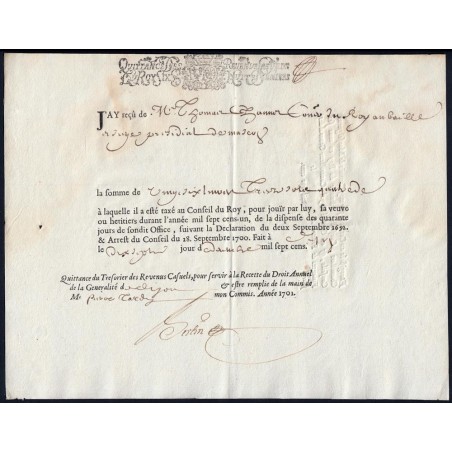 QUITTANCE DES
J'AY reçû de Mr Thomas Conr du Roy au baille
et siege presidial de mascon
la somme de
à laquelle il a esté taxé au Conseil du Roy, pour joüir par luy, sa veuve
ou heritiers durant l'année mil sept cens-un, de la dispense des quarante
jours de sondit Office, suivant la Declaration du deux Septembre 1692.
& Arrest du Conseil du 28. Septembre 1700. Fait à Lyon
le jour de mil sept cens.
Quittance du Tresorier des Revenus Casuels, pour servir à la Recette du Droit Annuel
de la Generalité de Lyon & estre remplie de la main de
Me pierre mon Commis. Année 1701.
Bertin